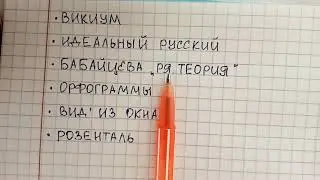 · ВИКИУМ
· ИДЕАЛЬНЫЙ РУССКИЙ
· БАБАЙЦЕВА „РЯ ТЕОРИЯ"
· ОРФОГРАММЫ
· ВИД ИЗ ОКНА
· РОЗЕНТАЛЬ